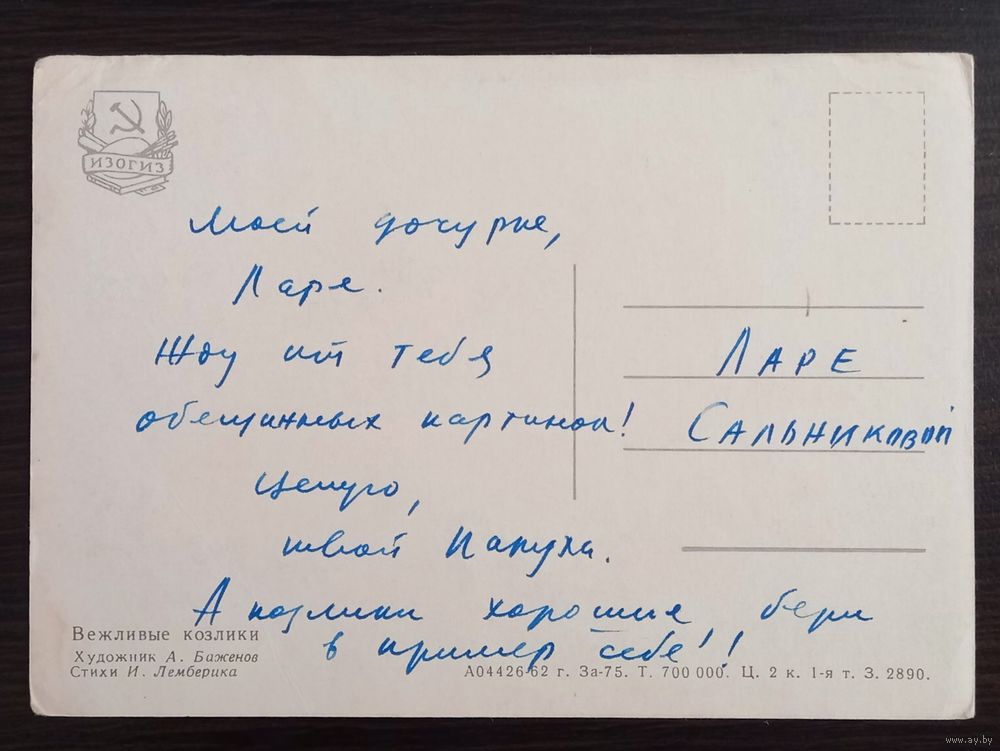 ИЗОГИЗ
Моей дочурке,
Ларе.
Жду от тебя
обещанных картинок!
Целую,
твой Папуха.
А козлики хорошие, бери
в пример себе!!
Ларе
Сальниковой
Вежливые козлики
Художник А. Баженов
Стихи И. Лемберика
А04426-62 г. За-75. Т. 700 000. Ц. 2 к. 1-я т. З. 2890.
www.ay.by